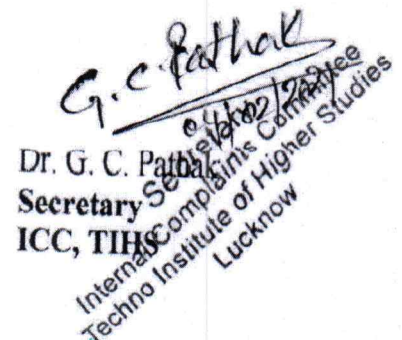 G. C. Pathak
Dr. G. C. Pathak
Secretary
ICC, TIHS
Secretary
Internal Complaints Committee
Techno Institute of Higher Studies
Lucknow